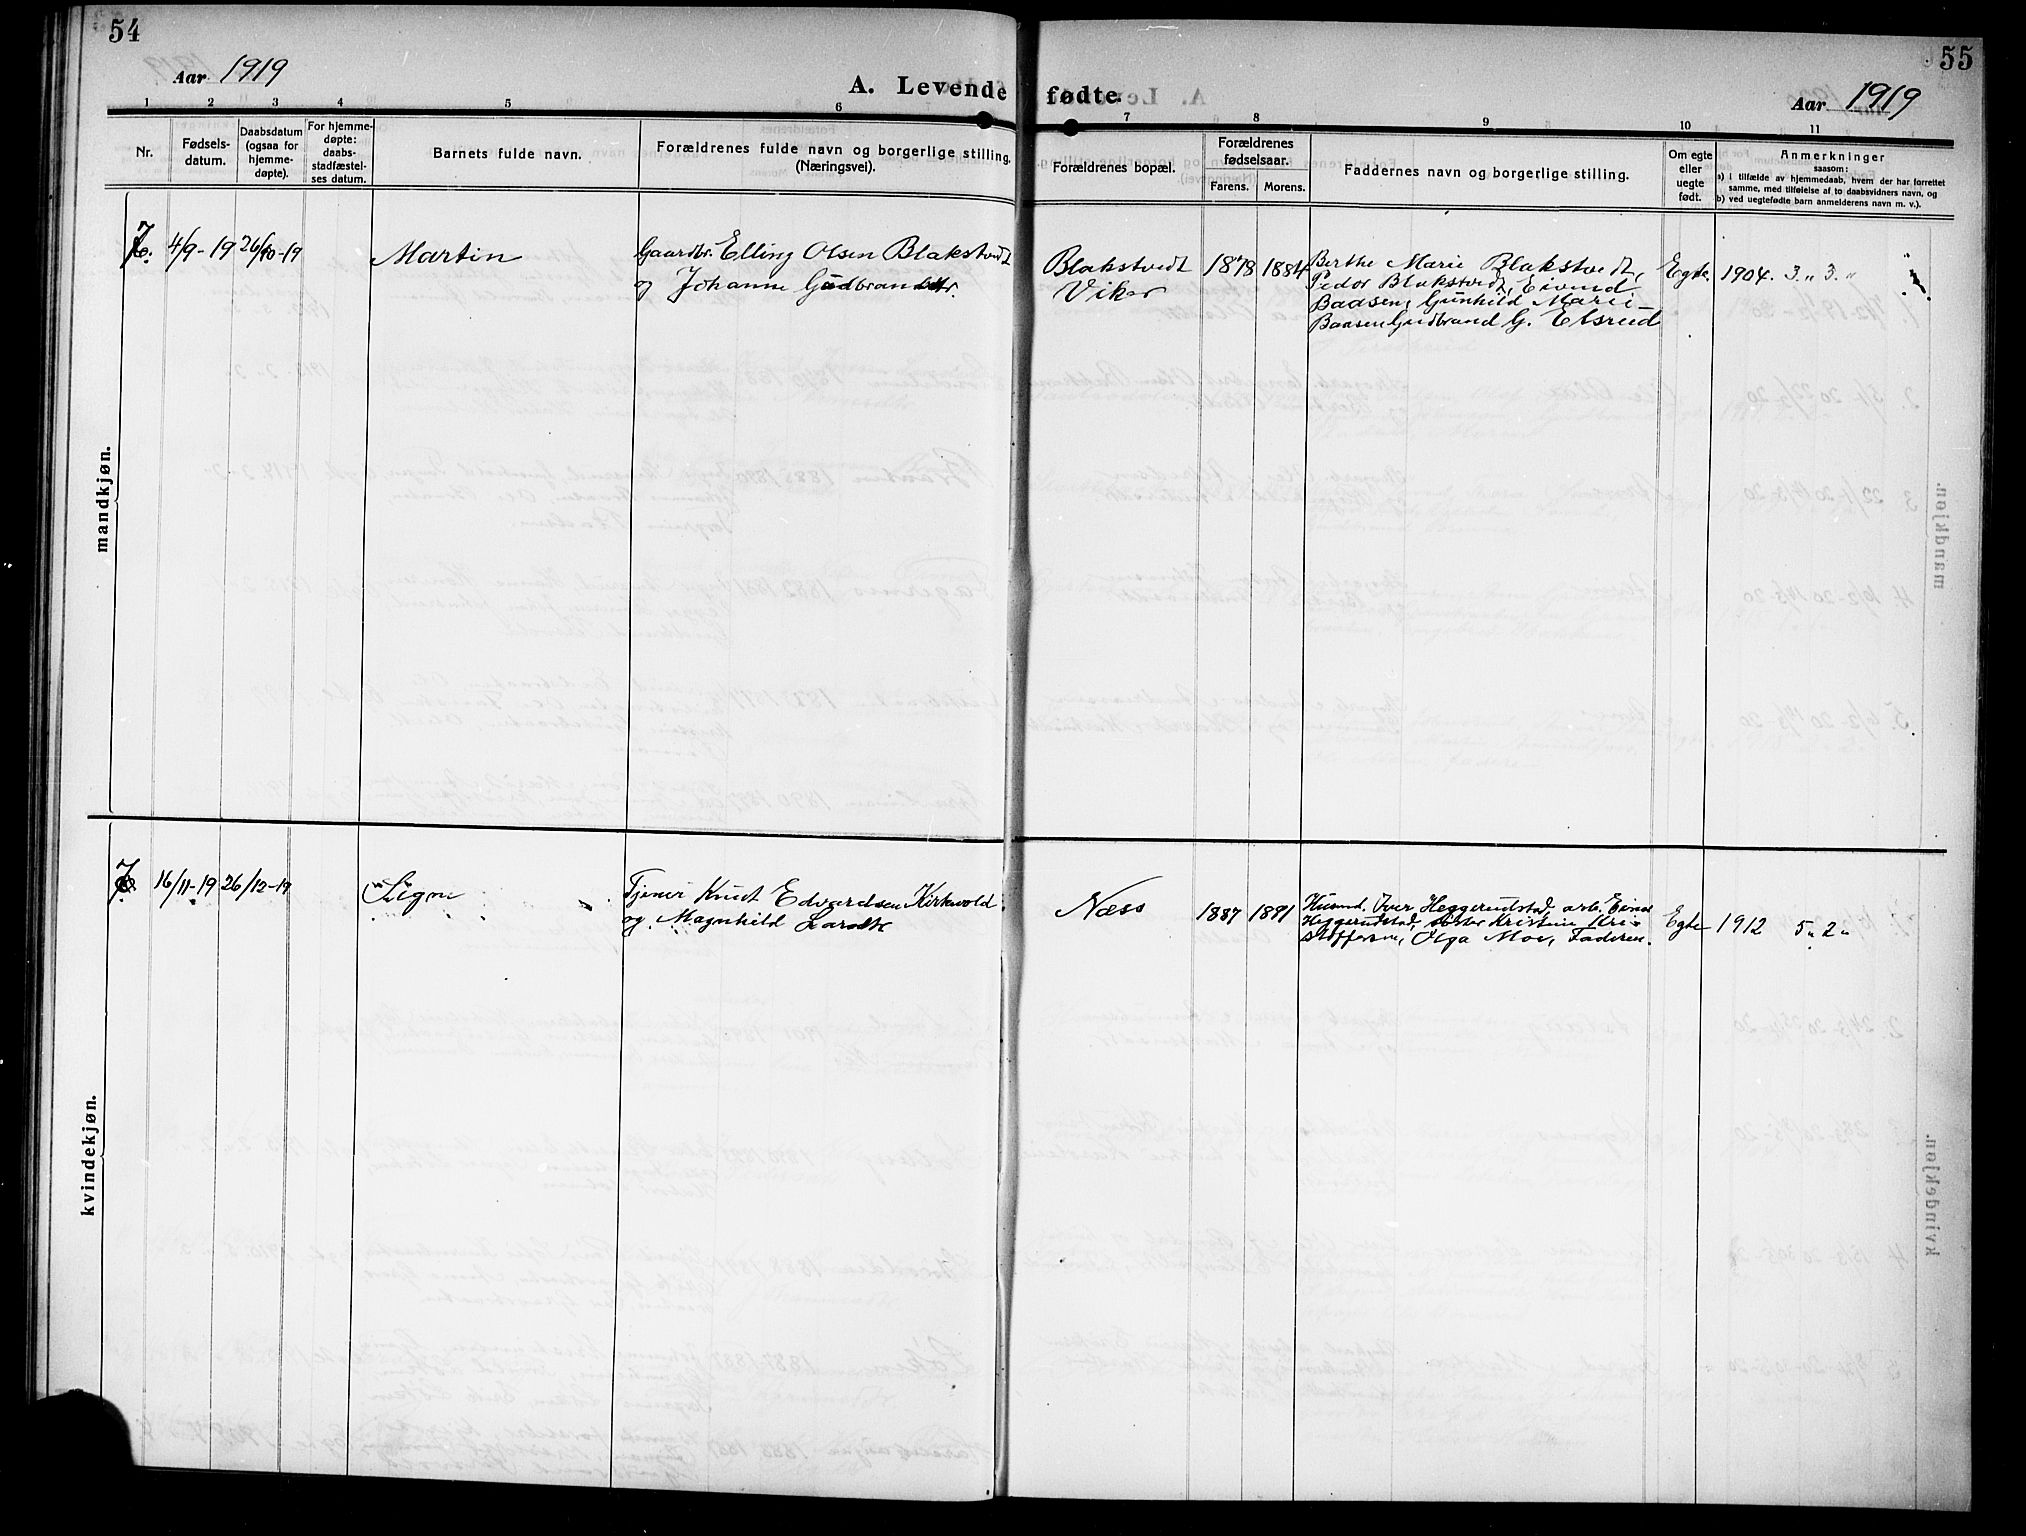 54
Aar 1919
A. Levende
1 2 3 4 5 6
Nr.
Fødsels-
datum.
Daabsdatum
(ogsaa for
hjemme-
døpte).
For hjemme-
døpte:
daabs-
stadfæstel-
ses datum.
Barnets fulde navn.
Forældrenes fulde navn og borgerlige stilling.
(Næringsvei).
mandkjøn.
7. 4/9-19 26/10-19
Martin
Gaardbr. Elling Olsen Blakstvedt
og Johanne Gudbrandsdtr.
kvindekjøn.
7. 16/11-19 26/12-19
Signe
Tjener Knut Edvardsen Kirkvold
og Magnhild Larsdtr
55
fødte.
Aar 1919
7 8 9 10 11
Forældrenes bopæl.
Forældrenes
fødselsaar.
Farens. Morens.
Faddernes navn og borgerlige stilling.
Om egte
eller
uegte
født.
Anmerkninger
saasom:
a) i tilfælde av hjemmedaab, hvem der har forrettet
samme, med tilføielse af to daabsvidners navn, og
b) ved uegtefødte barn anmelderens navn m. v.).
Blakstvedt
Viker
1878 1884
Berthe Marie Blakstvedt,
Peder Blakstvedt, Eivind
Baasen, Gunhild Marie
Baasen, Gudbrand G. Elsrud
Egte. 1904. 3 „ 3. „
Næss
1887 1891
Husmd. Iver Heggerudstad, arb. Eivind
Heggerudstad, søster Kristine Kri-
stoffersen, Olga Moe, Faderen.
Egte 1912 5 „ 2 „